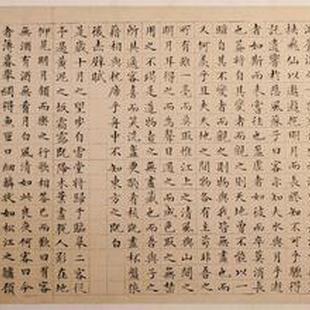 挾飛仙以遨遊抱明月而長終知不可乎驟得
託遺響於悲風蘇子曰客亦知夫水與月乎逝
者如斯而未嘗往也盈虛者如彼而卒莫消長
也蓋將自其變者而觀之則天地曾不能以一
瞬自其不變者而觀之則物與我皆無盡也而
又何羨乎且夫天地之間物各有主苟非吾之
所有雖一毫而莫取惟江上之清風與山間之
明月耳得之而為聲目遇之而成色取之無禁
用之不竭是造物者之無盡藏也而吾與子之
所共適客喜而笑洗盞更酌肴核既盡杯盤狼
藉相與枕席乎舟中不知東方之既白
後赤壁賦
是歲十月之望步自雪堂將歸于臨皋二客從
予過黃泥之坂霜露既降木葉盡脫人影在地
仰見明月顧而樂之行歌相答已而歎曰有客
無酒有酒無肴月白風清如此良夜何客曰今
者薄暮舉網得魚巨口細鱗狀如松江之鱸顧